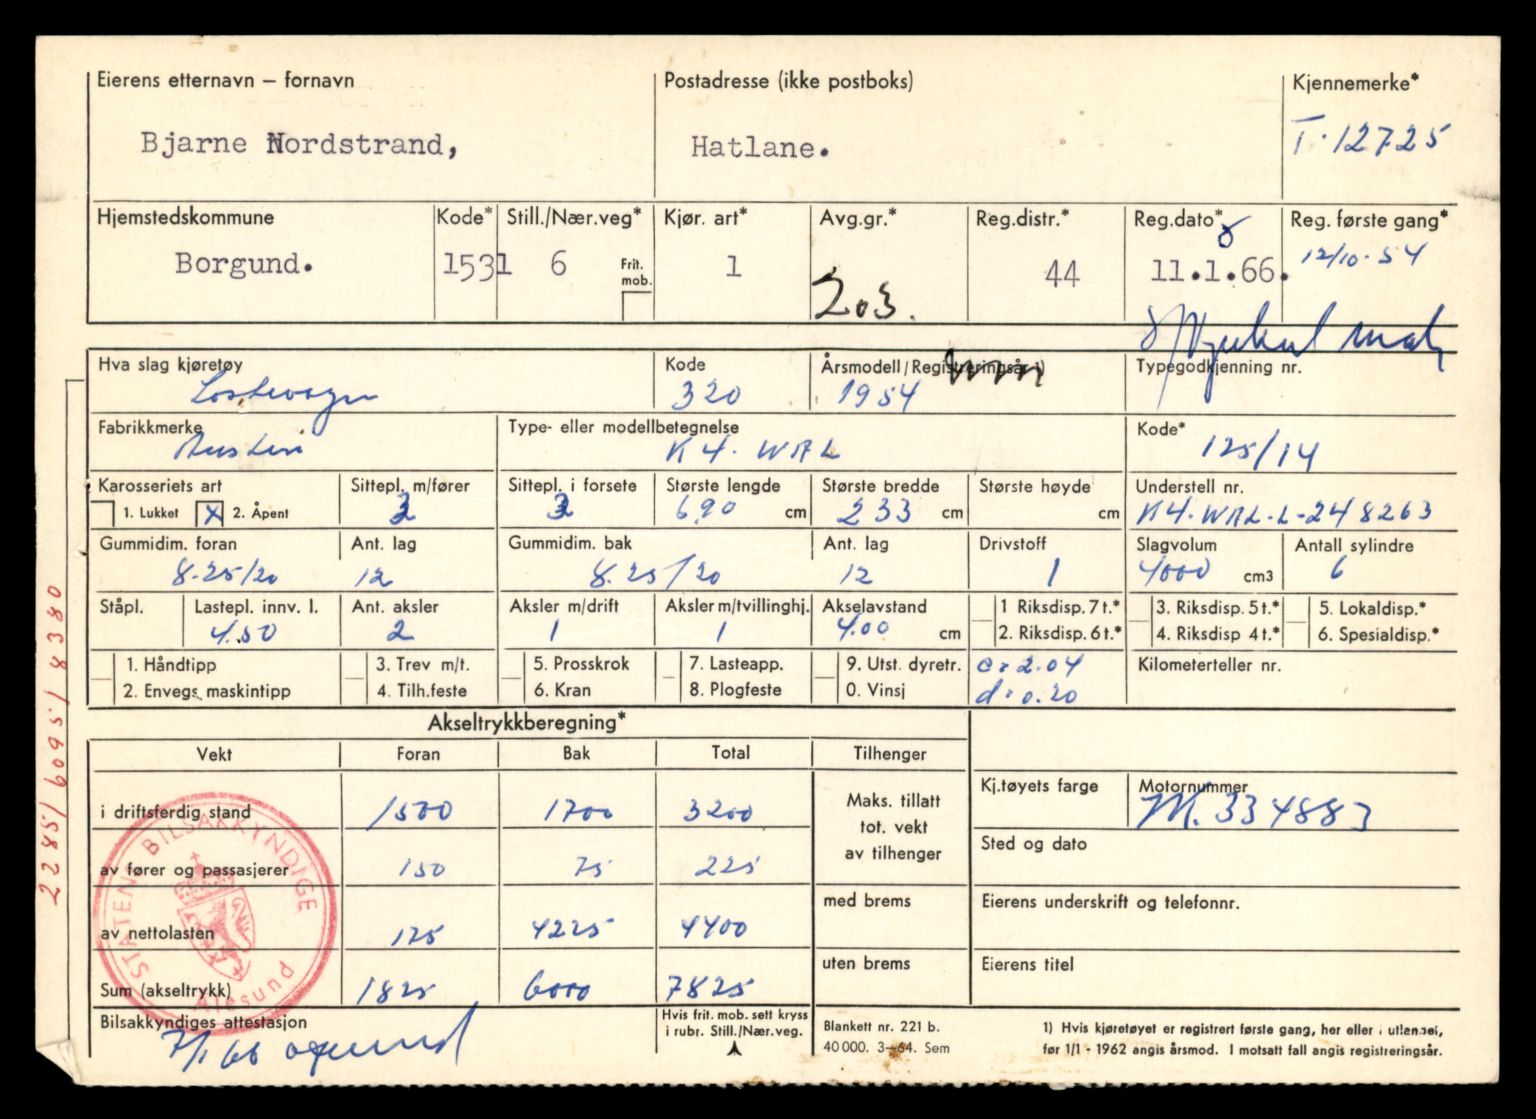 Eierens etternavn – fornavn
Bjarne Nordstrand,
Postadresse (ikke postboks)
Hatlane.
Kjennemerke*
T-12725
Hjemstedskommune
Borgund.
Kode*
1531
Still./Nær.veg*
6
Frit. mob.
Kjør. art*
1
Avg.gr.*
203.
Reg.distr.*
44
Reg.dato*
11.1.66.
Reg. første gang*
12/10-54
Hva slag kjøretøy
Lastevogn
Kode
320
Årsmodell/Registreringsår 1)
1954
Typegodkjenning nr.
Fabrikkmerke
Austin
Type- eller modellbetegnelse
K4. WAL
Kode*
125/14
Karosseriets art
1. Lukket
X 2. Åpent
Sittepl. m/fører
Sittepl. i forsete
Største lengde
690 cm
Største bredde
233 cm
Største høyde
cm
Understell nr.
K4-WAL-L-248263
Gummidim. foran
8-25/20
Ant. lag
12
Gummidim. bak
8.25/20
Ant. lag
12
Drivstoff
1
Slagvolum
4000 cm3
Antall sylindre
6
Ståpl.
Lastepl. innv. l.
4.50
Ant. aksler
2
Aksler m/drift
1
Aksler m/tvillinghj.
1
Akselavstand
4.00 cm
1 Riksdisp. 7 t.*
2. Riksdisp. 6 t.*
3. Riksdisp. 5 t.*
4. Riksdisp 4 t.*
5. Lokaldisp.*
6. Spesialdisp.*
1. Håndtipp
2. Envegs maskintipp
3. Trev m/t.
4. Tilh.feste
5. Prosskrok
6. Kran
7. Lasteapp.
8. Plogfeste
9. Utst. dyretr.
0. Vinsj
c = 2.04
d = 0.20
Kilometerteller nr.
Akseltrykkberegning*
Vekt Foran Bak Total Tilhenger
i driftsferdig stand 1500 1700 3200
av fører og passasjerer 150 75 225
av nettolasten 175 4225 4400
Sum (akseltrykk) 1825 6000 7825
Maks. tillatt
tot. vekt
av tilhenger
med brems
uten brems
Kj.tøyets farge
Motornummer
M. 334883
Sted og dato
Eierens underskrift og telefonnr.
Eierens titel
STATENS BILSAKKYNDIGE
Ålesund
Bilsakkyndiges attestasjon
7/1 66
Hvis frit. mob. sett kryss
i rubr. Still./Nær.veg.
Blankett nr. 221 b.
40 000. 3–64. Sem
1) Hvis kjøretøyet er registrert første gang, her eller i utlandet,
før 1/1 - 1962 angis årsmod. I motsatt fall angis registreringsår.
2285/6095/8380